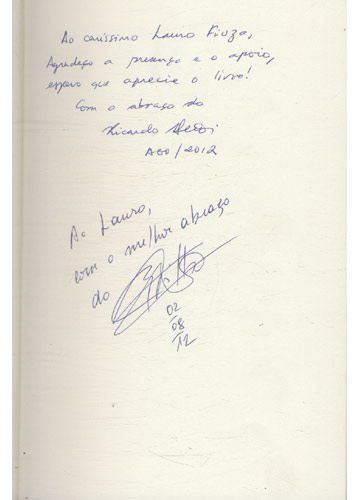 Ao caríssimo Lauro Fiuza,
Agradeço a presença e o apoio,
espero que aprecie o livro!
Com o abraço do
Ricardo
AGO/2012
Ao Lauro,
com o melhor abraço
do
02
08
12